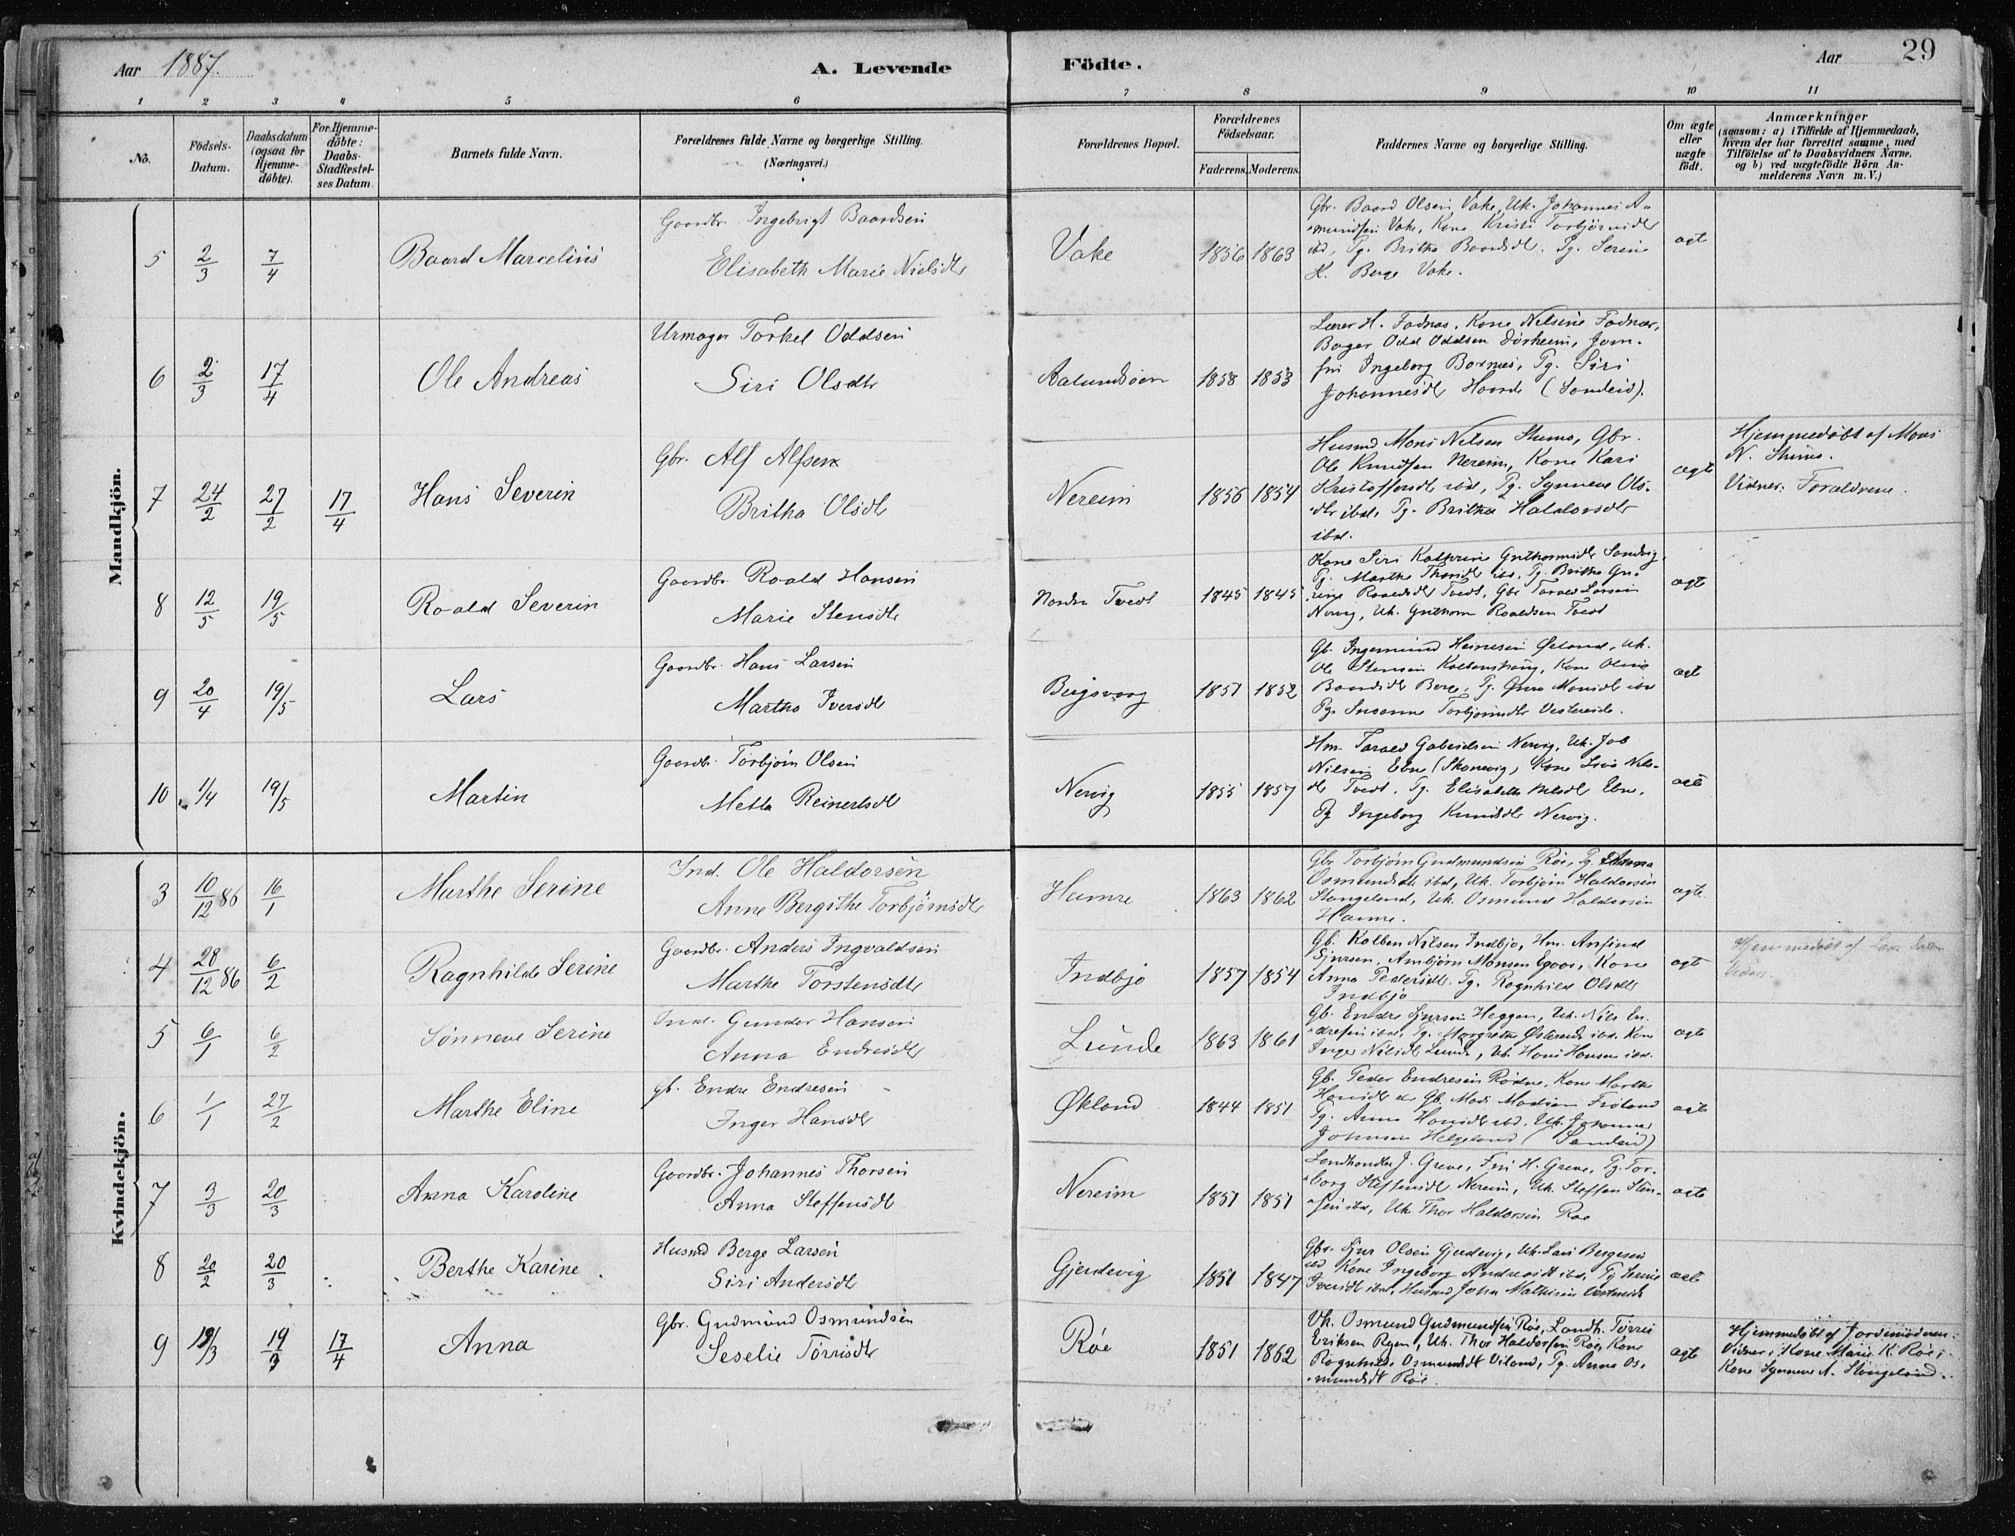 Aar 1887.
A. Levende
Födte.
Aar
29
1 2 3 4 5 6 7 8 9 10 11
No.
Födsels-Datum.
Daabsdatum (ogsaa for Hjemme-döbte).
For Hjemme-döbte: Daabs-Stadfæstel-ses Datum.
Barnets fulde Navn.
Forældrenes fulde Navne og borgerlige Stilling. (Næringsvei.)
Forældrenes Bopæl.
Forældrenes Födselsaar.
Faderens. Moderens.
Faddernes Navne og borgerlige Stilling.
Om ægte eller uægte födt.
Anmærkninger
(saasom: a) i Tilfælde af Hjemmedaab, hvem der har forrettet samme, med Tilföielse af to Daabsvidners Navne. og b) ved uægtefödte Börn An-melderens Navn m. V.)
Mandkjön.
5 2/3 7/4 Baard Marcelius
Gaardbr. Ingebrigt Baardsen
Elisabeth Marie Nielsdtr
Vake 1856 1863
Gbr. Baard Olsen Vake, Uk. Johannes A-
mundsen Vake, Kone Kristi Torbjørnsdtr
ibd, Pg. Britha Baardsdt. Pg. Serine
K. Berge Vake.
ægt
6 2/3 17/4 Ole Andreas
Urmager Torkel Oddsen
Siri Olsdtr
Aalundsøen 1858 1853
Lærer H. Fadnæs, Kone Nelsine Fadnæs,
Bager Odd Oddsen Dørheim, Jom-
fru Ingeborg Boxnes, Pg. Siri
Johannesdt Haarde (Sandeid).
7 24/2 27/2 17/4 Hans Severin
Gbr. Alf Alfsen
Britha Olsdtr
Nereim 1856 1854
Husmd Mons Nelsen Stumo, Gbr.
Ole Knudsen Nereim, Kone Kari
Kristoffersdt ibd, Pg. Synneve Ols-
dtr ibd, Pg. Britha Haldorsdtr
ibd.
ægte
Hjemmedøbt af Mons
N. Stumo.
Vidner: Forældrene.
8 12/5 19/5 Roald Severin
Gaardbr. Roald Hansen
Marie Stensdtr
Nordre Tvedt 1845 1845
Kone Siri Kathrine Guthormsdtr Sandvig
Pg. Marthe Thorsdt ibd, Pg. Britha Gu-
rine Roaldsdt Tvedt, Gbr Tarald Larsen
Nervig, Uk. Guthorm Roaldsen Tvedt
ægte
9 20/4 19/5 Lars
Gaardbr. Hans Larsen
Martha Iversdtr
Bergsvaag 1851 1852
Gb. Ingemund Heinesen Øsland, Uk.
Ole Stensen, Kone Olene
Baardsdt Berge, Pg. Monsdt ibd
Pg. Susanne Torbjørnsdtr Vestereide.
ægt
10 1/4 19/5 Martin
Gaardbr. Torbjørn Olsen
Metta Reinertsdtr
Nervig 1855 1857
Hm. Tarald Gabrielsen Nervig, Uk. Job
Nilsen Ebne (Skonevig), Kone Nels-
dt Tvedt, Pg. Elisabeth Nelsdt Ebne,
Pg Ingeborg Knudsdt Nervig.
ægt
Kvindekjön.
3 10/12 86 16/1 Marthe Serine
Ind. Ole Haldorsen
Anne Bergithe Torbjørnsdtr
Hamre 1863 1862
Gbr Torbjørn Gudmundsen Røe, Pg. Anna
Osmundsdt ibd, Uk. Torbjørn Haldorsen
Stangeland, Uk. Osmund Haldorsen
Hamre.
ægte
4 28/12 86 6/2 Ragnhilde Serine
Gaardbr. Anders Ingvaldsen
Marthe Torstensdtr
Indbjo 1857 1854
Gb. Kolben Nilsen Indbjo, Hm. Anfind
Sjursen, Ambjørn Monsen Egaas, Kone
Anna Pedersdt. Pg. Ragnhild Olsdtr
Indbjo
ægt
Hjemmedøbt af
5 6/1 6/2 Sønneve Serine
Ind. Gunder Hansen
Anna Endresdtr
Lunde 1863 1861
Gb. Endre Sjursen Heggen, Uk. Nils En-
dresen ibd, Pg. Margrethe ibd. Kone
Inger Nilsdt Lunde, Uk. Hans Hansen ibd.
ægt
6 1/1 27/2 Marthe Eline
gb. Endre Endresen
Inger Hansdtr
Økland 1844 1851
Gb. Peder Endresen Rødne, Kone Marthe
Hansdt Gb. Mads Madsen Frøland
Pg. Anna Hansdt ibd. Uk. Johannes
Johnsen Helgeland (Sandeid)
ægt
7 3/3 20/3 Anna Karoline
Gaardbr. Johannes Thorsen
Anna Steffensdtr
Nereim 1851 1851
Landhandler J. Greve, Fru H. Greve, Pg. Tor-
borg Steffensdt Nereim, Uk. Steffen Sten-
sen ibd, Uk Thor Haldorsen Røe
ægte
8 20/2 20/3 Berthe Karine
Husmd Berge Larsen
Siri Andersdtr
Gjerdevig 1851 1847
Gbr. Sjur Olsen Gjerdevig, Uk. Lars Bergesen
ibd Kone Ingeborg Andersdt ibd, Pg Serine
Iversdt ibd, Husmd John Mathisen Vestereide
ægte
9 18/3 19/3 17/4 Anna
Gbr. Gudmund Osmundsen
Seselie Tørrisdtr
Røe 1851 1862
Uk. Osmund Gudmundsen Røe, Landh. Tørris
Eriksen Ryen, Uk. Thor Haldorsen Røe, Kone
Ragnhild Osmundsdt Viland, Pg. Anna Os-
mundsdt Røe.
ægte
Hjemmedøbt af Jordmoderen.
Vidner: Kone Marie K. Røe,
Kone Synneve A. Stangeland.